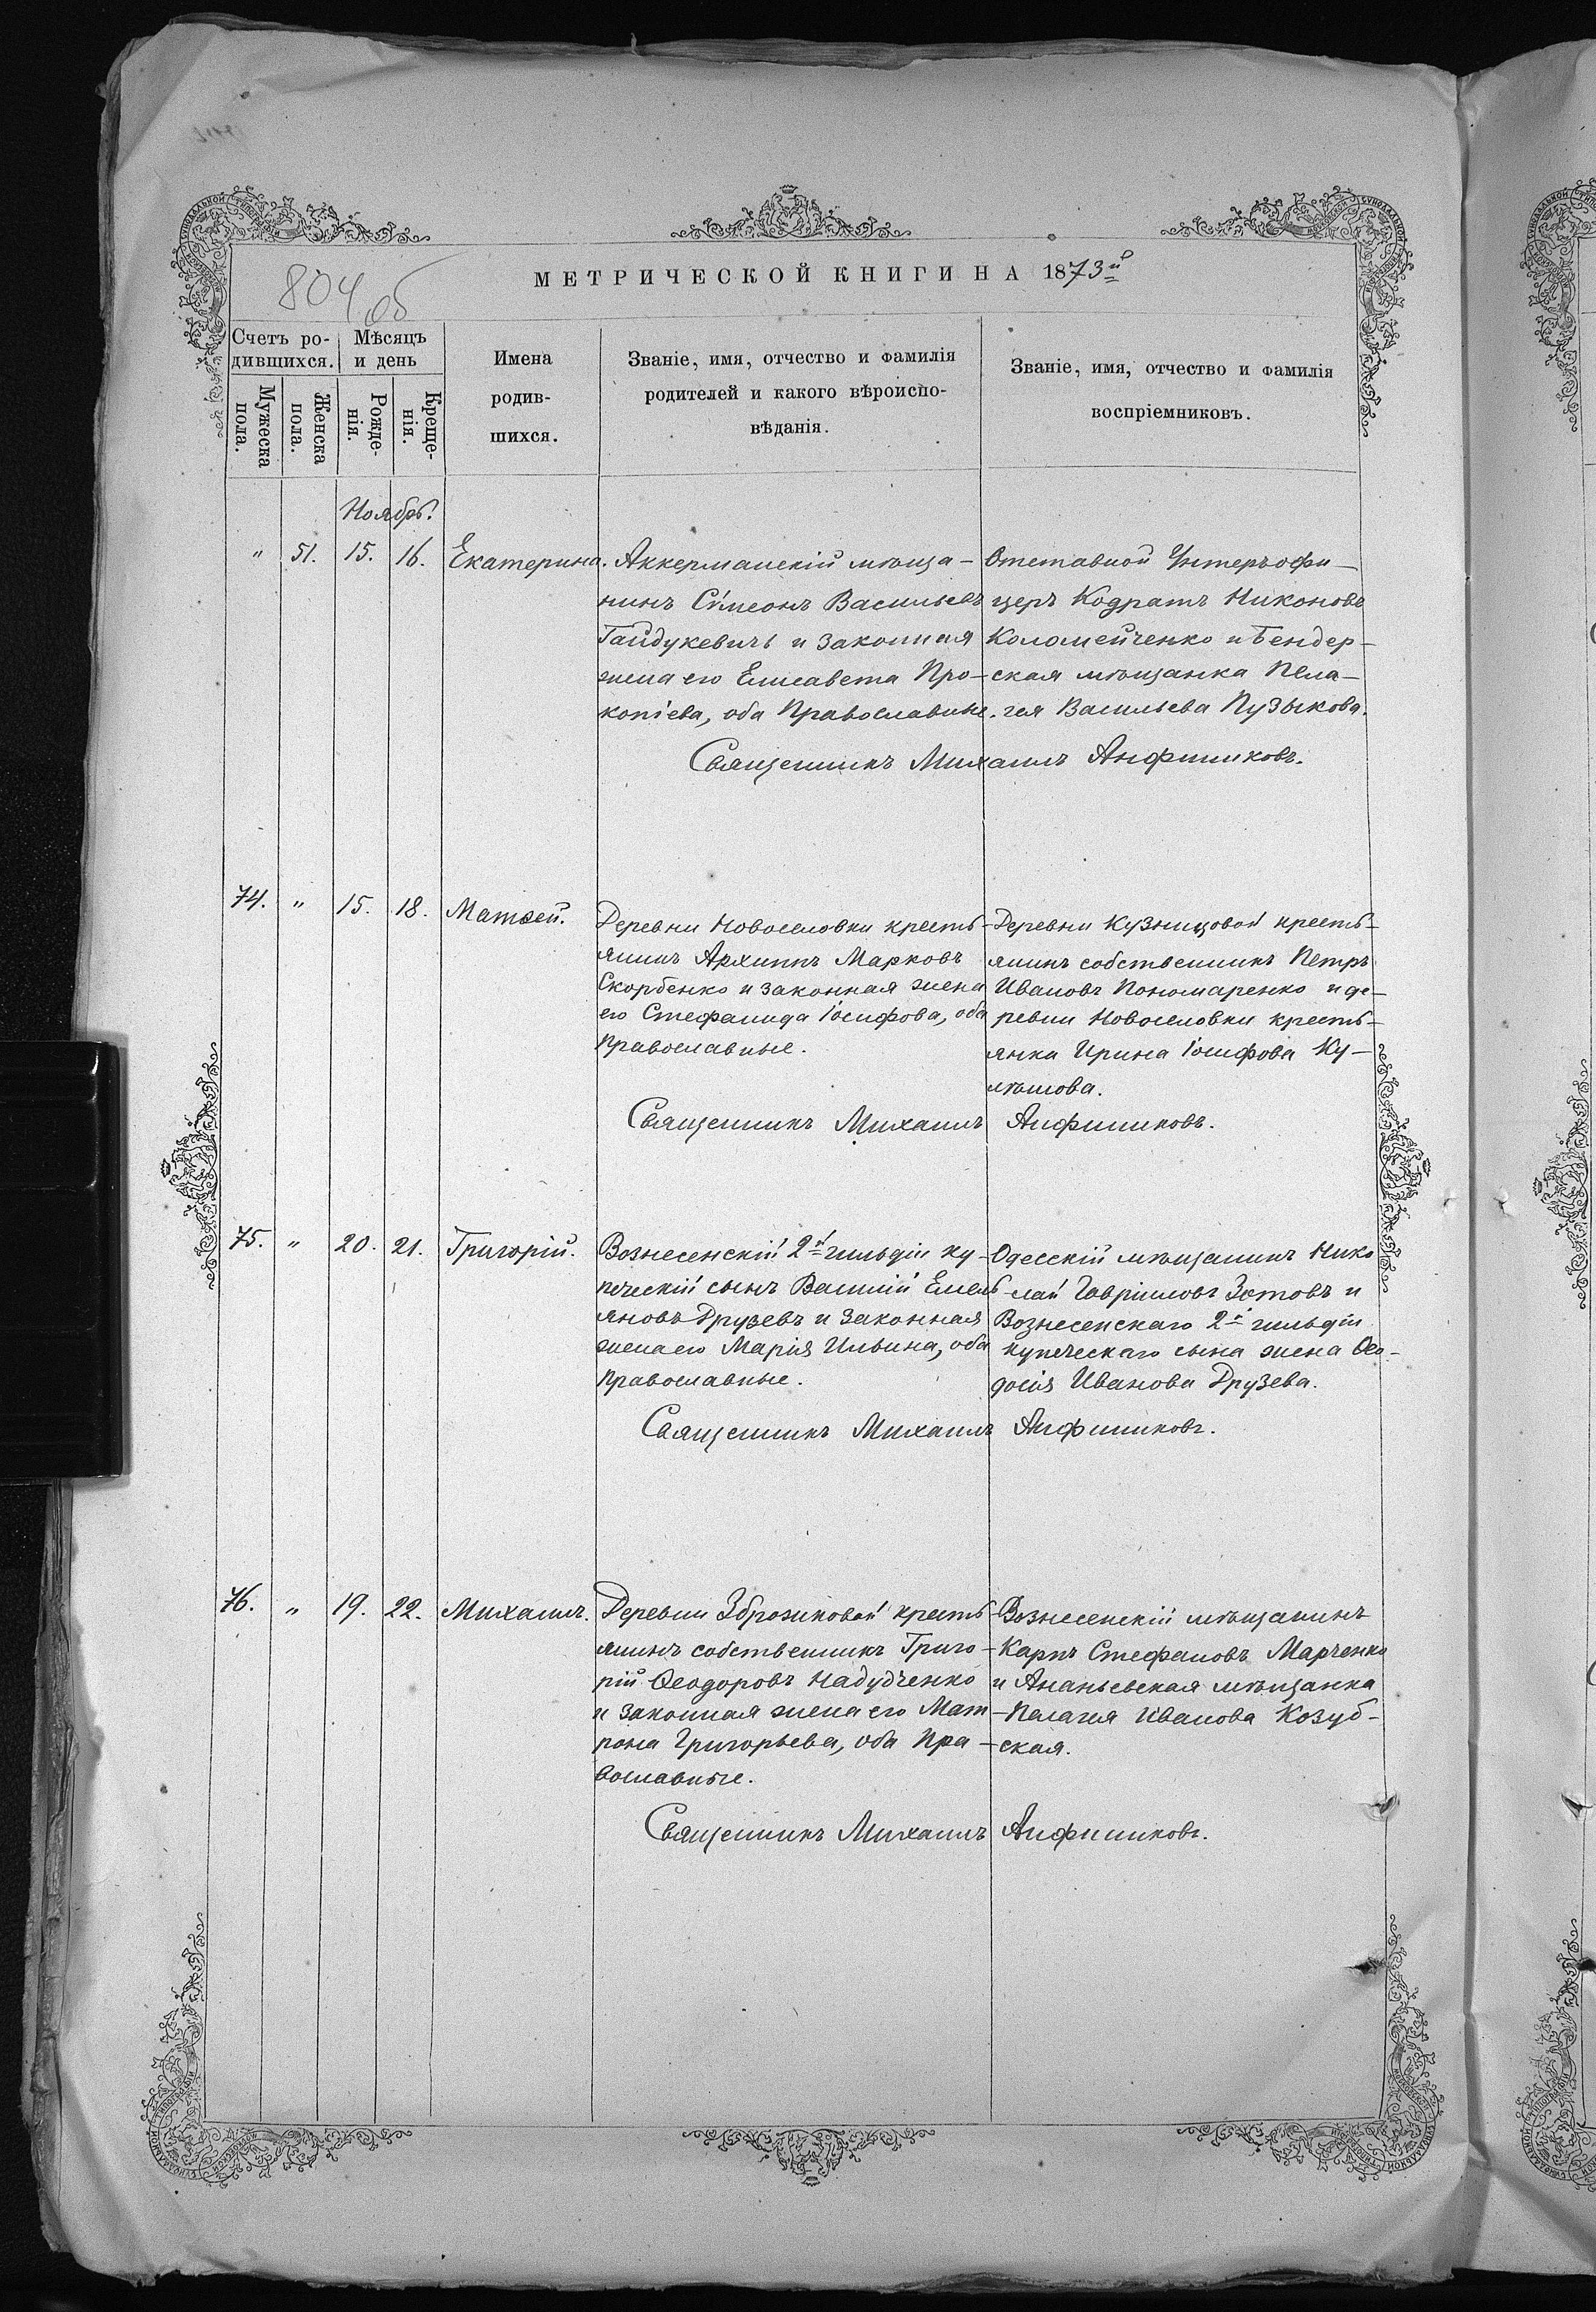 804 об
МЕТРИЧЕСКОЙ КНИГИ НА 1873й
Счетъ ро-
дившихся.
Мѣсяцъ
и день
Мужеска
пола.
Женска
пола.
Рожде-
нія.
Креще-
нія.
Имена
родив-
шихся.
Званіе, имя, отчество и фамилія
родителей и какого вѣроиспо-
вѣданія.
Званіе, имя, отчество и фамилія
воспріемниковъ.
Ноябрь.
" 51. 15. 16. Екатерина.
Аккерманскій мѣща-
нинъ Сѵмеонъ Васильевъ
Гайдукевичъ и законная
жена его Елисавета Про-
копіева, оба Православные.
Отставной Унтеръофи-
церъ Кодратъ Никоновъ
Коломейченко и Бендер-
ская мѣщанка Пела-
гея Васильева Пузыкова.
Священникъ Михаилъ Анфиниковъ.
74. " 15. 18. Матѳей.
Деревни Новоселовки кресть-
янинъ Архиппъ Марковъ
Скорбенко и законная жена
его Стефанида Іосифова, оба
православные.
Деревни Кузнецовой кресть-
янинъ собственникъ Петръ
Ивановъ Пономаренко и де-
ревни Новоселовки кресть-
янка Ирина Іосифова Ку-
лѣшова.
Священникъ Михаилъ Анфиниковъ.
75. " 20. 21. Григорій.
Вознесенскій 2й гильдіи ку-
печескій сынъ Василій Емель
яновъ Друзевъ и законная
жена его Марія Ильина, оба
православные.
Одесскій мѣщанинъ Нико
лай Гавріиловъ Зотовъ и
Вознесенскаго 2й гильдіи
купеческаго сына жена Ѳео-
досія Иванова Друзева.
Священникъ Михаилъ Анфиниковъ.
76. " 19. 22. Михаилъ.
Деревни Зброжиковой кресть
янинъ собственникъ Григо-
рій Ѳеодоровъ Надудченко
и законная жена его Мат-
рона Григорьева, оба Пра-
вославные.
Вознесенскій мѣщанинъ
Карпъ Стефановъ Марченко
и Ананьевская мѣщанка
Пелагея Иванова Козуб-
ская.
Священникъ Михаилъ Анфиниковъ.